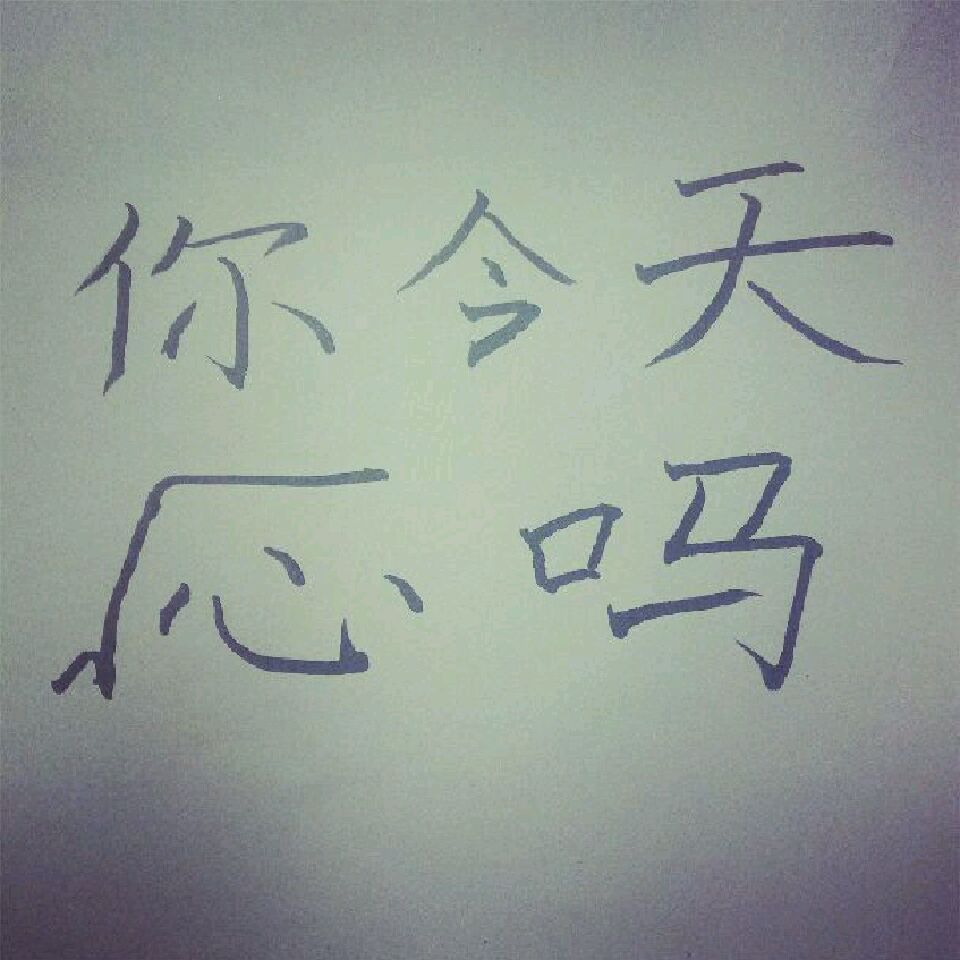 你今天
√心吗